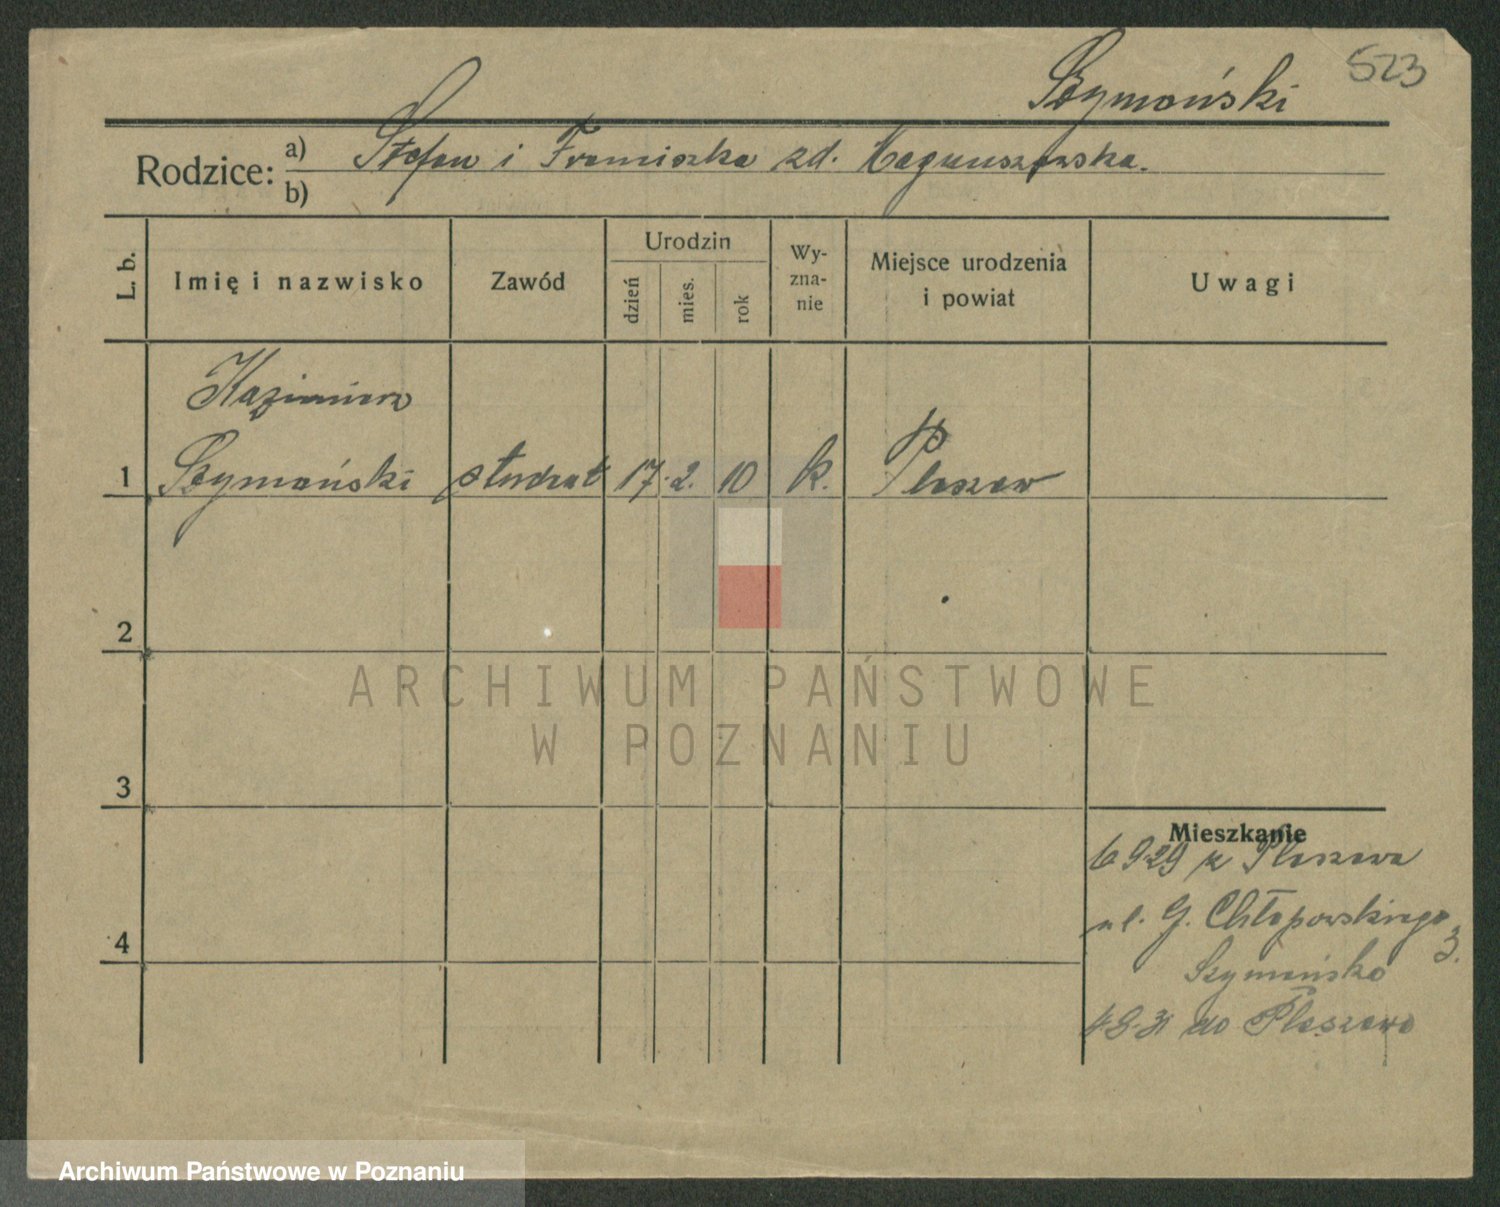 523
Szymański
Rodzice: a) Stefan i Franciszka zd. Maguszewska.
b)
L. b.
Imię i nazwisko
Zawód
Urodzin
dzień
mies.
rok
Wy-
zna-
nie
Miejsce urodzenia
i powiat
Uwagi
Kazimierz
1 Szymański student 17. 2. 10 k. Pleszew
2
3
4
Mieszkanie
6 9 29 z Pleszewa
ul. G. Chłapowskiego
3.
Szymańska
4 9 31 do Pleszewa
ARCHIWUM PAŃSTWOWE
W POZNANIU
Archiwum Państwowe w Poznaniu